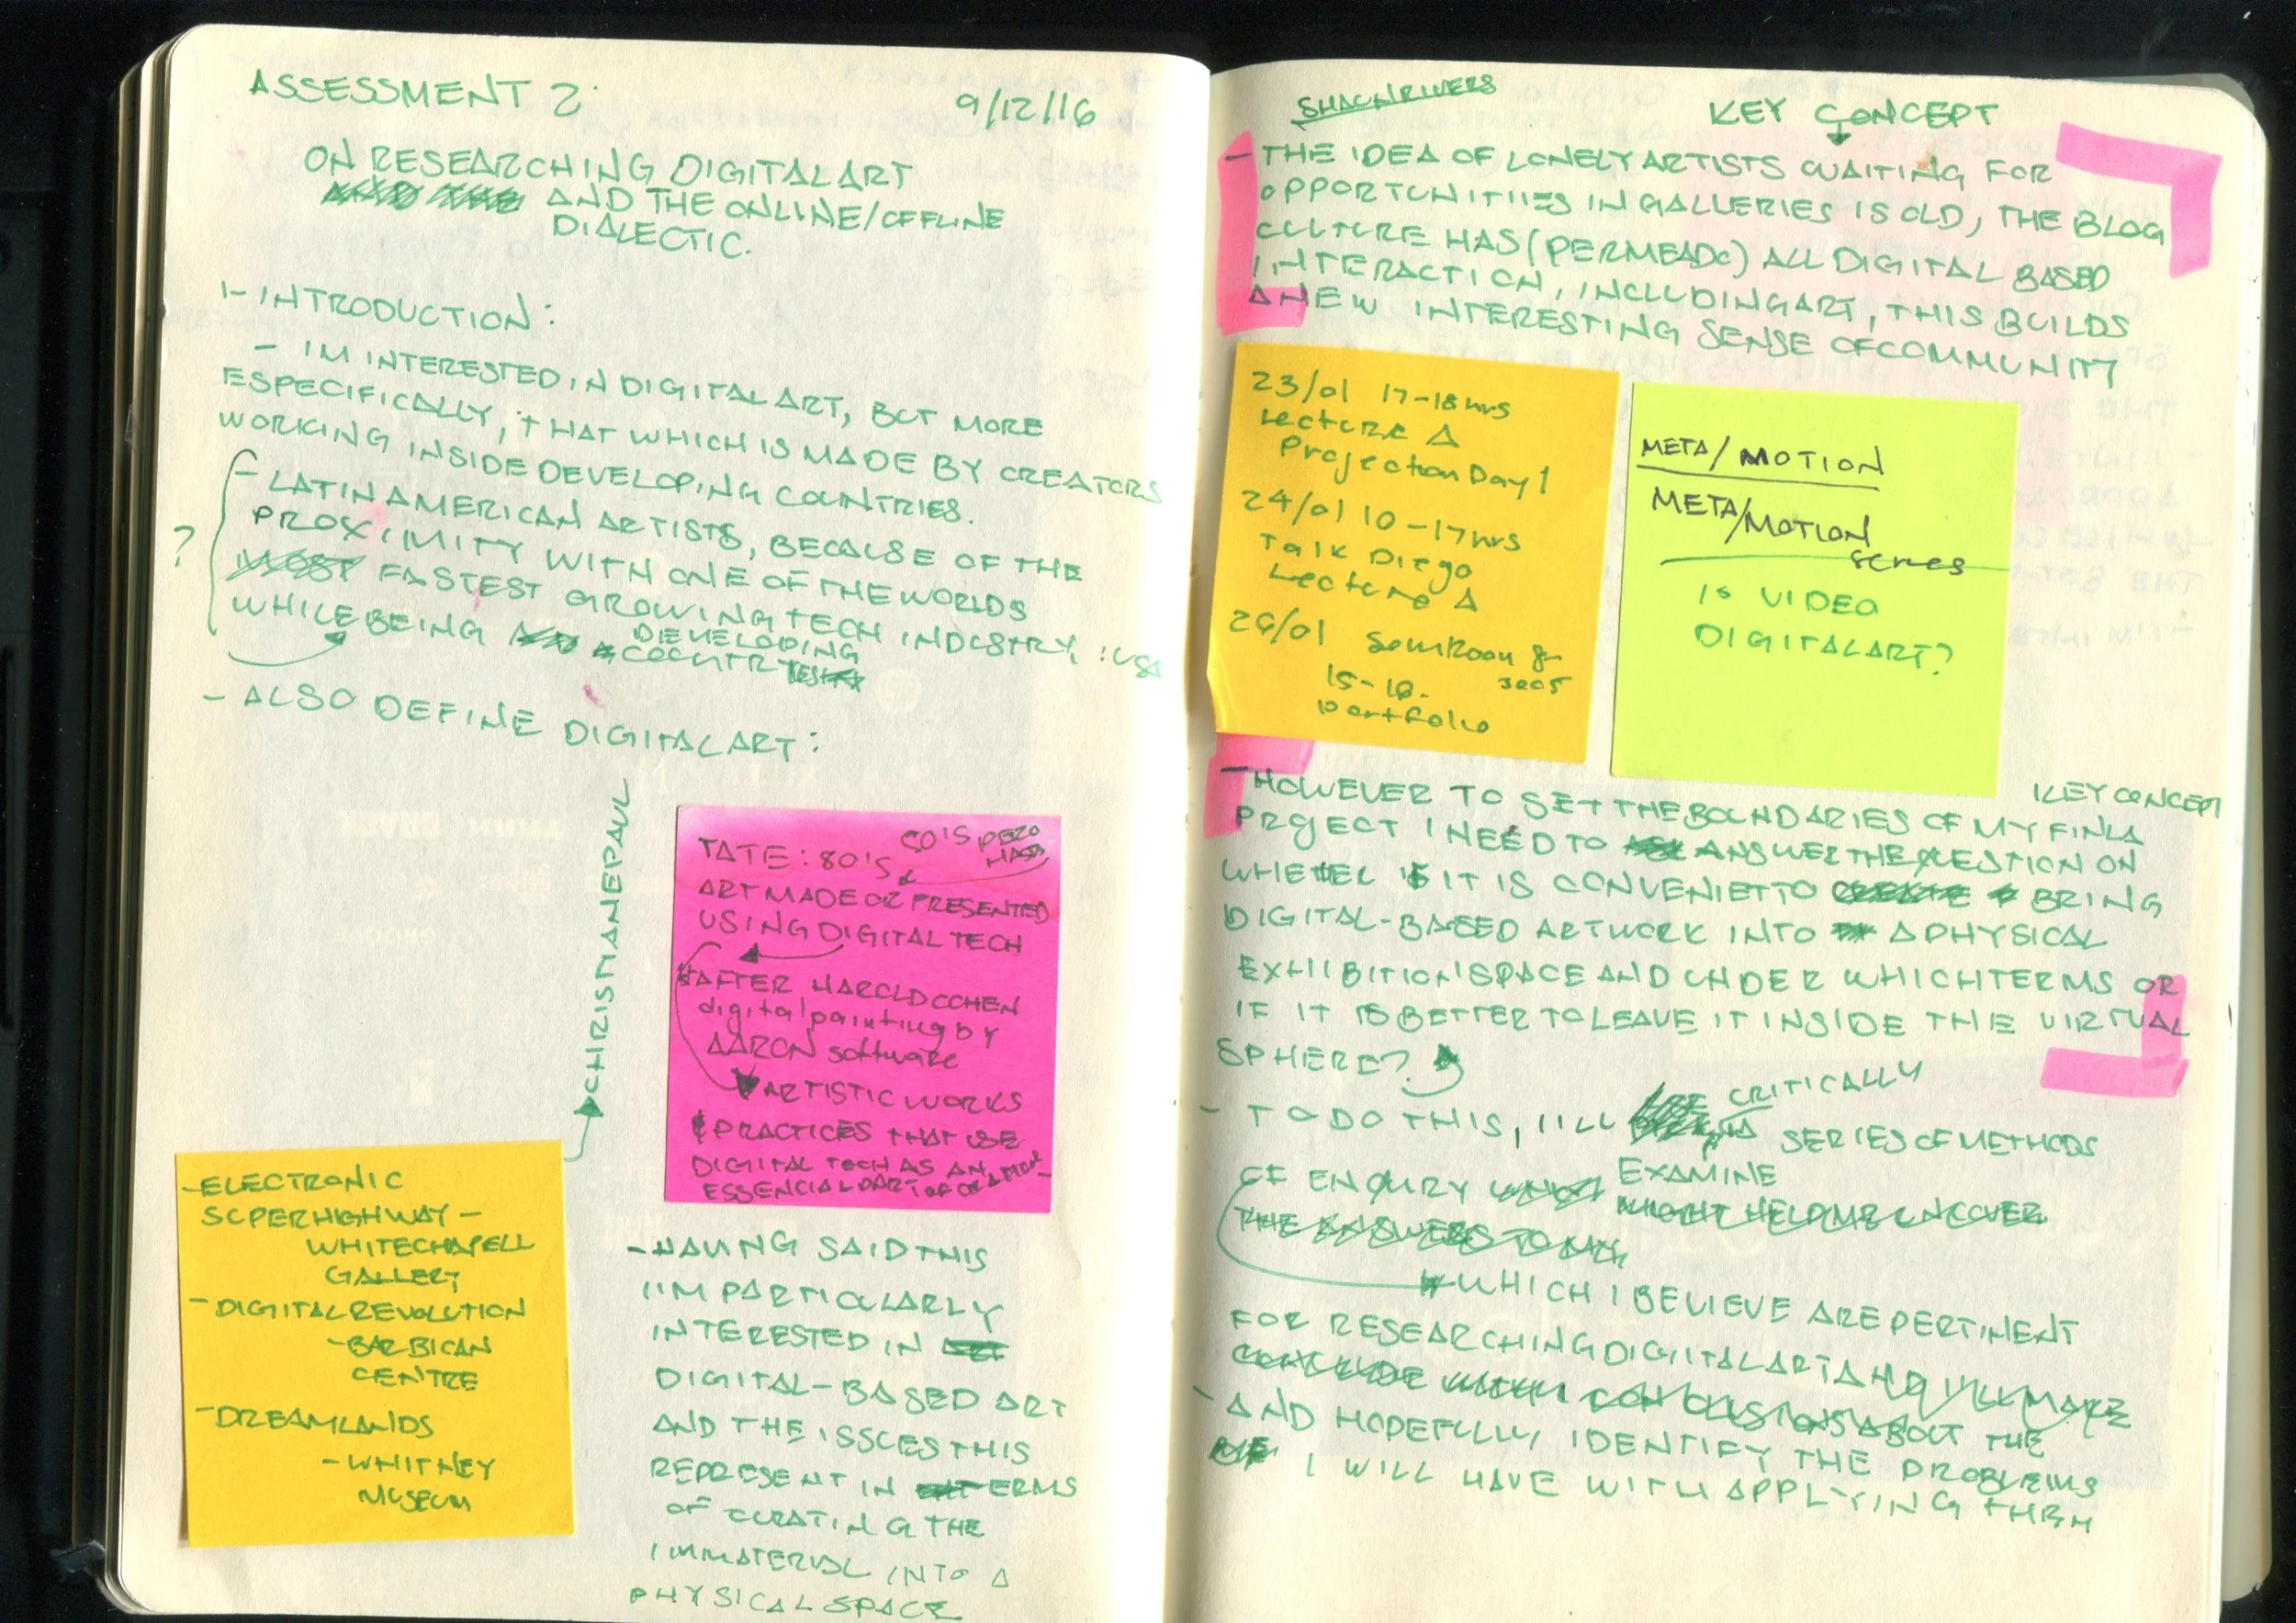 ASSESSMENT 2.
9/12/16
ON RESEARCHING DIGITAL ART
AND THE ONLINE/OFFLINE
DIALECTIC.
1- INTRODUCTION:
- IM INTERESTED IN DIGITAL ART, BUT MORE
ESPECIFICALLY, THAT WHICH IS MADE BY CREATORS
WORKING INSIDE DEVELOPING COUNTRIES.
- LATIN AMERICAN ARTISTS, BECAUSE OF THE
PROXIMITY WITH ONE OF THE WORLDS
? MOST FASTEST GROWING TECH INDUSTRY, : USA
WHILE BEING DEVELOPING
COUNTRIES
- ALSO DEFINE DIGITAL ART:
CHRISTIANE PAUL
TATE: 80'S
ART MADE OR PRESENTED
USING DIGITAL TECH
AFTER HAROLD COHEN
digital painting by
AARON software
ARTISTIC WORKS
& PRACTICES THAT USE
DIGITAL TECH AS AN
ESSENCIAL PART OF
- ELECTRONIC
SUPERHIGHWAY -
WHITECHAPELL
GALLERY
- DIGITAL REVOLUTION
- BARBICAN
CENTRE
- DREAMLANDS
- WHITNEY
MUSEUM
- HAVING SAID THIS
I'IM PARTICULARLY
INTERESTED IN
DIGITAL-BASED ART
AND THE ISSUES THIS
REPRESENT IN TERMS
OF CURATING THE
IMMATERIAL INTO A
PHYSICAL SPACE
KEY CONCEPT
- THE IDEA OF LONELY ARTISTS WAITING FOR
OPPORTUNITIIES IN GALLERIES IS OLD, THE BLOG
CULTURE HAS (PERMEADO) ALL DIGITAL BASED
INTERACTION, INCLUDING ART, THIS BUILDS
A NEW INTERESTING SENSE OF COMMUNITY
23/01 17-18 hrs
Lecture A
Projection Day 1
24/01 10-17 hrs
Talk Diego
Lecture A
26/01
15-18.
portfolio
META/MOTION
META/MOTION
series
IS VIDEO
DIGITAL ART?
KEY CONCEPT
- HOWEVER TO SET THE BOUNDARIES OF MY FINLA
PROJECT I NEED TO ANSWER THE QUESTION ON
IT IS CONVENIET TO BRING
DIGITAL-BASED ARTWORK INTO A PHYSICAL
EXHIBITION SPACE AND UNDER WHICH TERMS OR
IF IT IS BETTER TO LEAVE IT INSIDE THE VIRTUAL
SPHERE?
- TO DO THIS, I'LL CRITICALLY
EXAMINE SERIES OF METHODS
OF ENQUIRY
MIGHT HELP ME UNCOVER
THE ANSWERS TO MY
WHICH I BELIEVE ARE PERTINENT
FOR RESEARCHING DIGITAL ART AND I'LL MAKE
CONCLUSIONS ABOUT THE
- AND HOPEFULLY IDENTIFY THE PROBLEMS
I WILL HAVE WITH APPLYING THEM